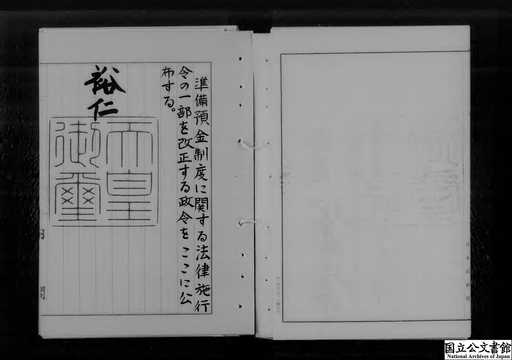 準備預金制度に関する法律施行
令の一部を改正する政令をここに公
布する。
裕仁
天皇
御璽
国立公文書館
National Archives of Japan